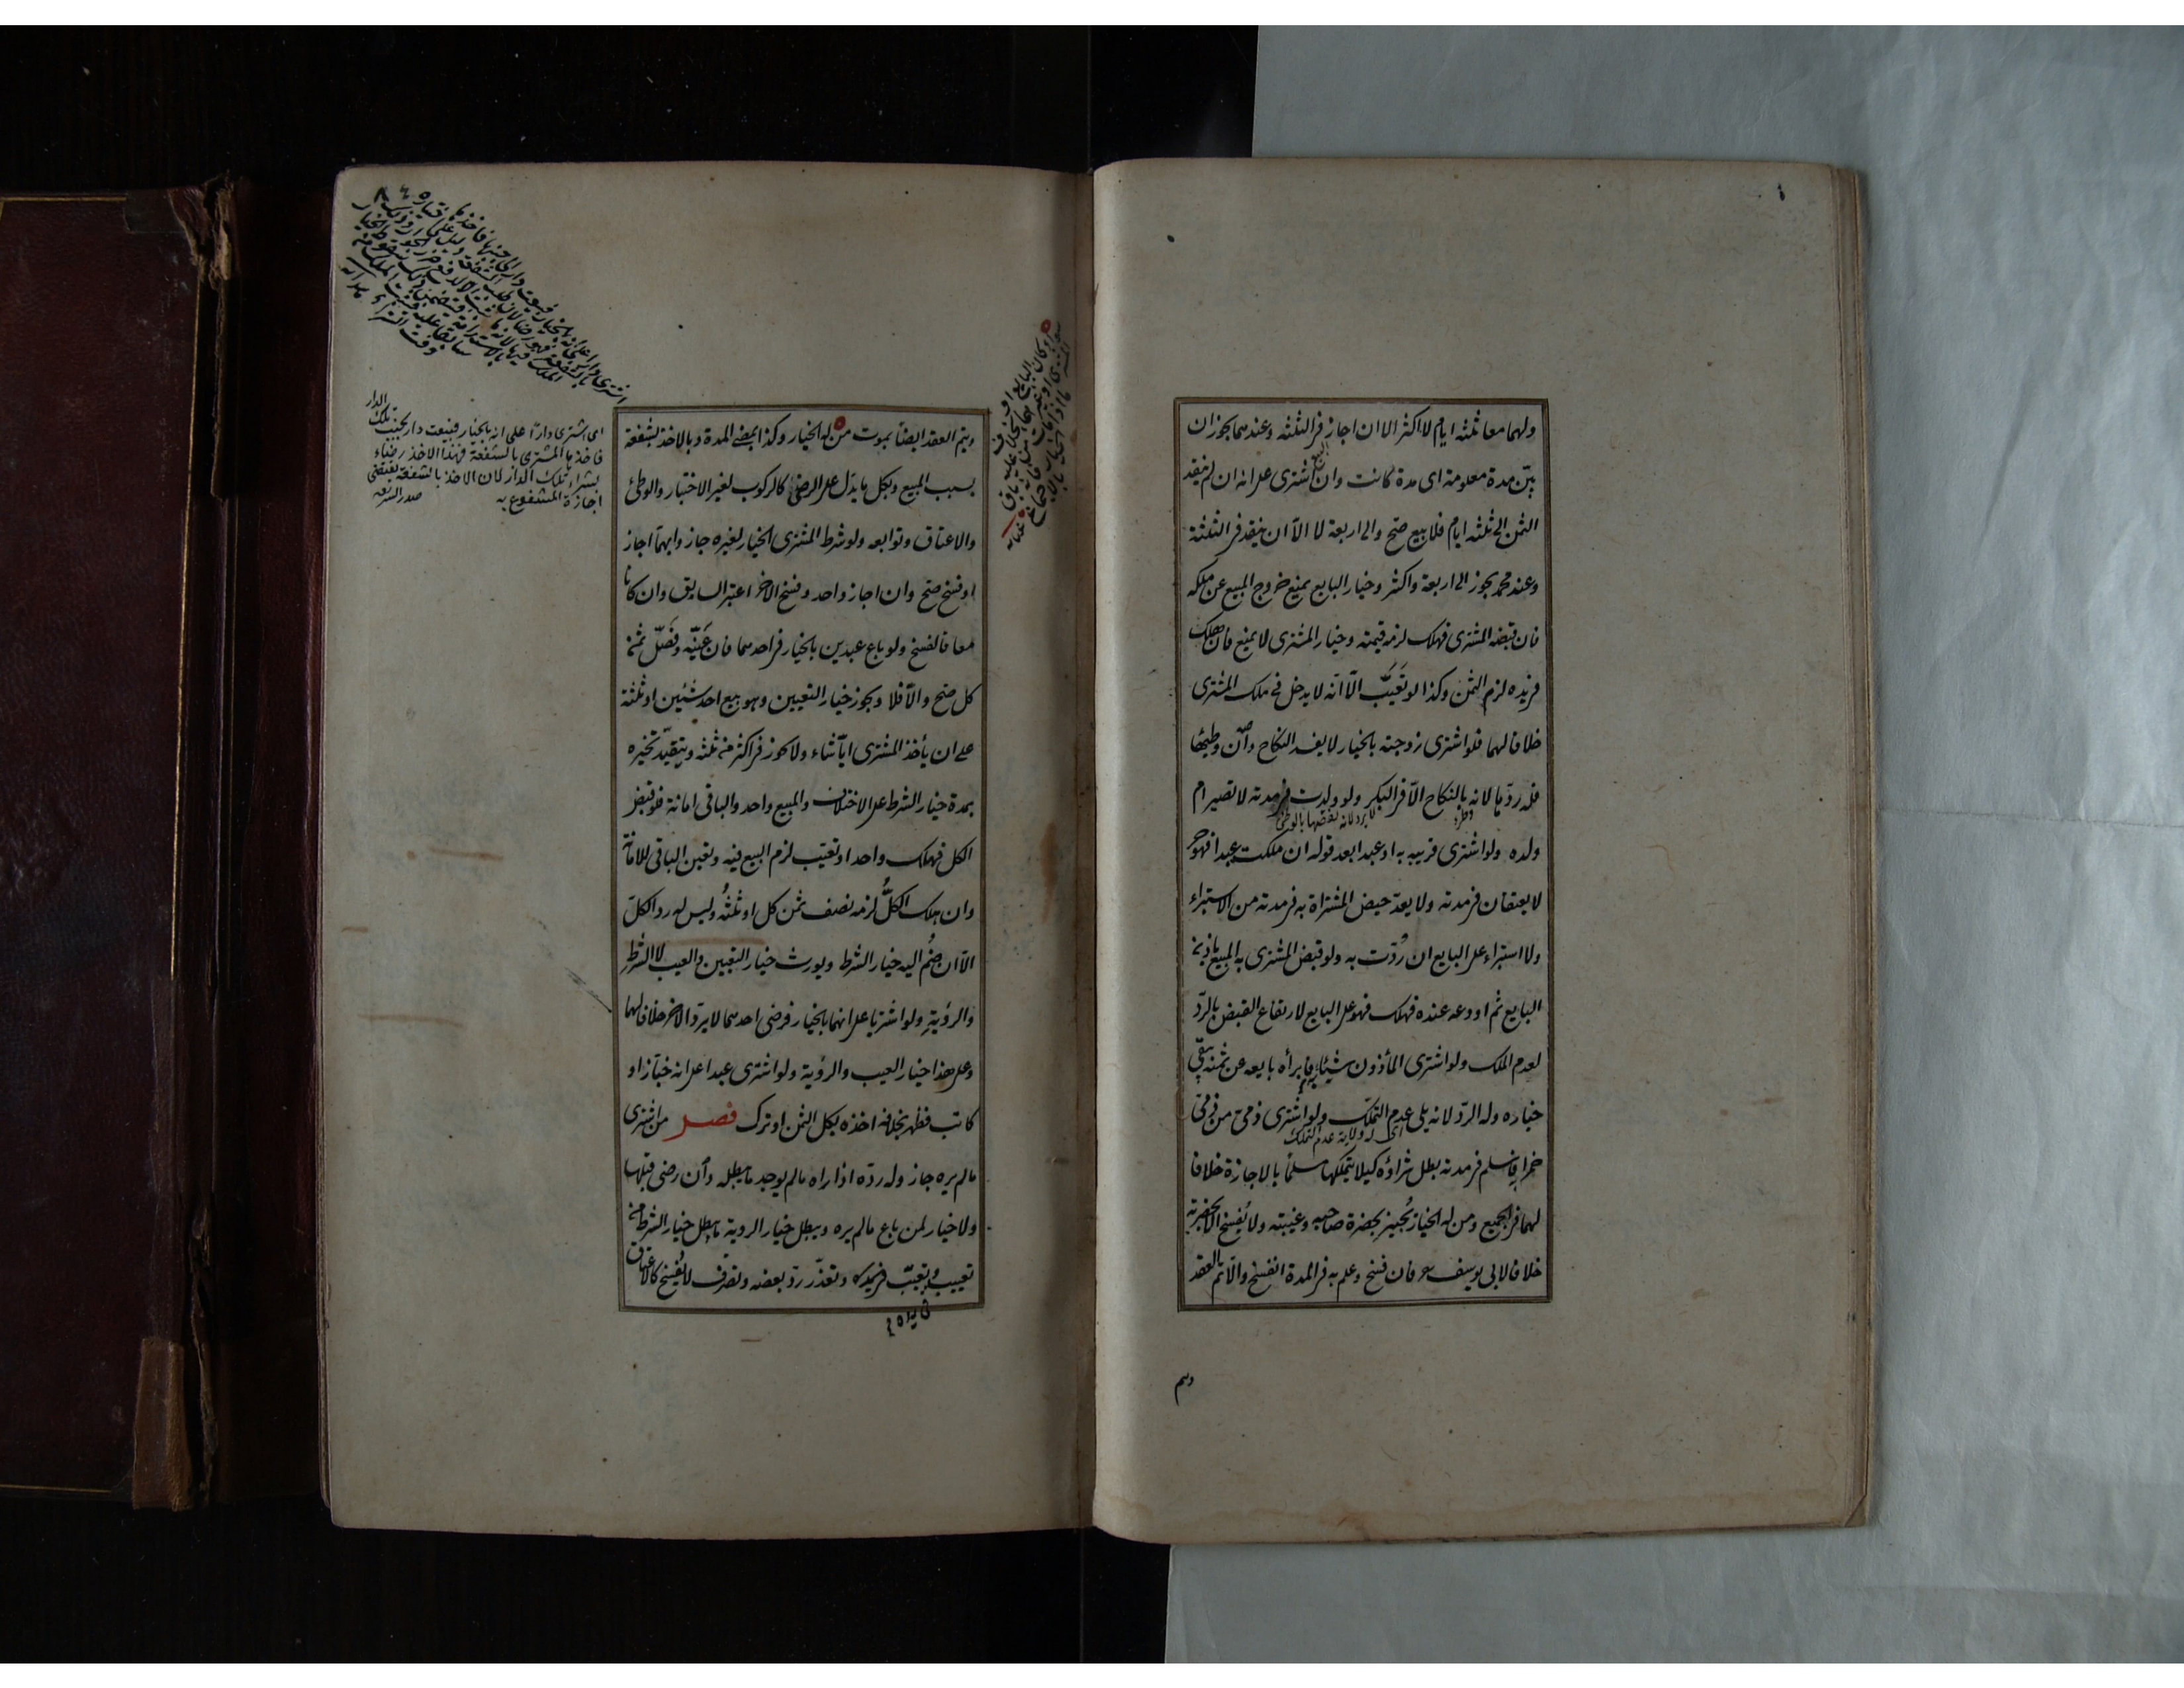 ولهما معا ثلثه ايام لا اكثر الا ان اجاز فى الثلثه وعندهما يجوز ان
بيّن مدة معلومة اى مدة كانت وان اشترى على انه ان لم ينقد
الثمن الى ثلثه ايام فلا بيع صح والى اربعة لا الا ان ينقد فى الثلثة
وعند محمد يجوز الى اربعة واكثر وخيار البايع يمنع خروج المبيع عن ملكه
فان قبضه المشترى فهلك لزمه قيمته وخيار المشترى لا يمنع فان هلك
فى يده لزم الثمن وكذا لو تَعَيَّبَ الّا انّه لا يدخل فى ملك المشترى
خلافا لهما فلو اشترى زوجته بالخيار لا يفسد النكاح وان وطئها
فله ردّها لانه بالنكاح الّا فى البكر ولو ولدت فى مدته لا تصير ام
ولده ولو اشترى قريبه به او عبدا بعد قوله ان ملكت عبدا فهو حر
لا يعتقان فى مدته ولا يعدّ حيض المشتراة به فى مدته من الاستبراء
ولا استبراء على البايع ان رُدّت به ولو قبض المشترى به المبيع باذن
البايع ثم اودعه عنده فهلك فهو على البايع لارتفاع القبض بالردّ
لعدم الملك ولو اشترى المأذون شيئا به فابرأه بايعه عن ثمنه بقى
خياره وله الردّ لانه يلى عدم التملّك ولو اشترى ذمى من ذمّى
اى له ولاية عدم التملك
خمرا به فاسلم فى مدته بطل شراؤه كيلا يتملكها مسلماً بالاجازة خلافا
لهما فى الجميع ومن له الخيار يُجيز بحضرة صاحبه وغيبته ولا يفسخ الا بحضرته
خلافا لابى يوسف فان فسخ وعلم به فى المدة انفسخ والّا تم العقد
ويتم العقد ايضاً بموت من له الخيار وكذا بمضى المدة وبالاخذ بشفعة
بسبب المبيع وبكل ما يدل على الرضى كالركوب لغير الاختبار والوطئ
والاعتاق وتوابعه ولو شرط المشترى الخيار لغيره جاز وايهما اجاز
او فسخ صح وان اجاز واحد وفسخ الاخر اعتبر السابق وان كانا
معا فالفسخ ولو باع عبدين بالخيار فى احدهما فان عَيّنه وفَصّل ثمن
كل صح والّا فلا ويجوز خيار التعيين وهو بيع احد شئين او ثلثة
على ان يأخذ المشترى ايّا شاء ولا يجوز فى اكثر من ثلثه ويتقيّد تخيره
بمدة خيار الشرط على الاختلاف والمبيع واحد والباقى امانة فلو قبض
الكل فهلك واحد او تعيّب لزم البيع فيه وتعين الباقى للامانة
وان هلك الكلُّ لزمه نصف ثمن كل او ثلثُه وليس له رد الكلّ
الّا ان ضُم اليه خيار الشرط ويورث خيار التعيين والعيب لا الشرطِ
والرؤيةِ ولو اشتريا على انهما بالخيار فرضى احدهما لا يردّ الاخر خلافا لهما
وعلى هذا خيار العيب والرؤية ولو اشترى عبدا على انه خبّاز او
كاتب فظهر بخلافه اخذه بكل الثمن او ترك فصل من اشترى
مالم يره جاز وله ردّه اذا راه مالم يوجد ما يبطله وان رضى قبلها
ولا خيار لمن باع مالم يره ويبطل خيار الروية ما يبطل خيار الشرط من
تعييب وتعيّب فى يده وتعذّر ردّ بعضه وتصرف لا يُفسخ كالاعتاق
اى اشترى دارًا على انه بالخيار فبيعت دار بجنب تلك الدار
فاخذها المشترى بالشفعة فهذا الاخذ رضاء
بشراء تلك الدار لان الاخذ بالشفعة يقتضى
اجازة المشفوع به صدر الشريعه